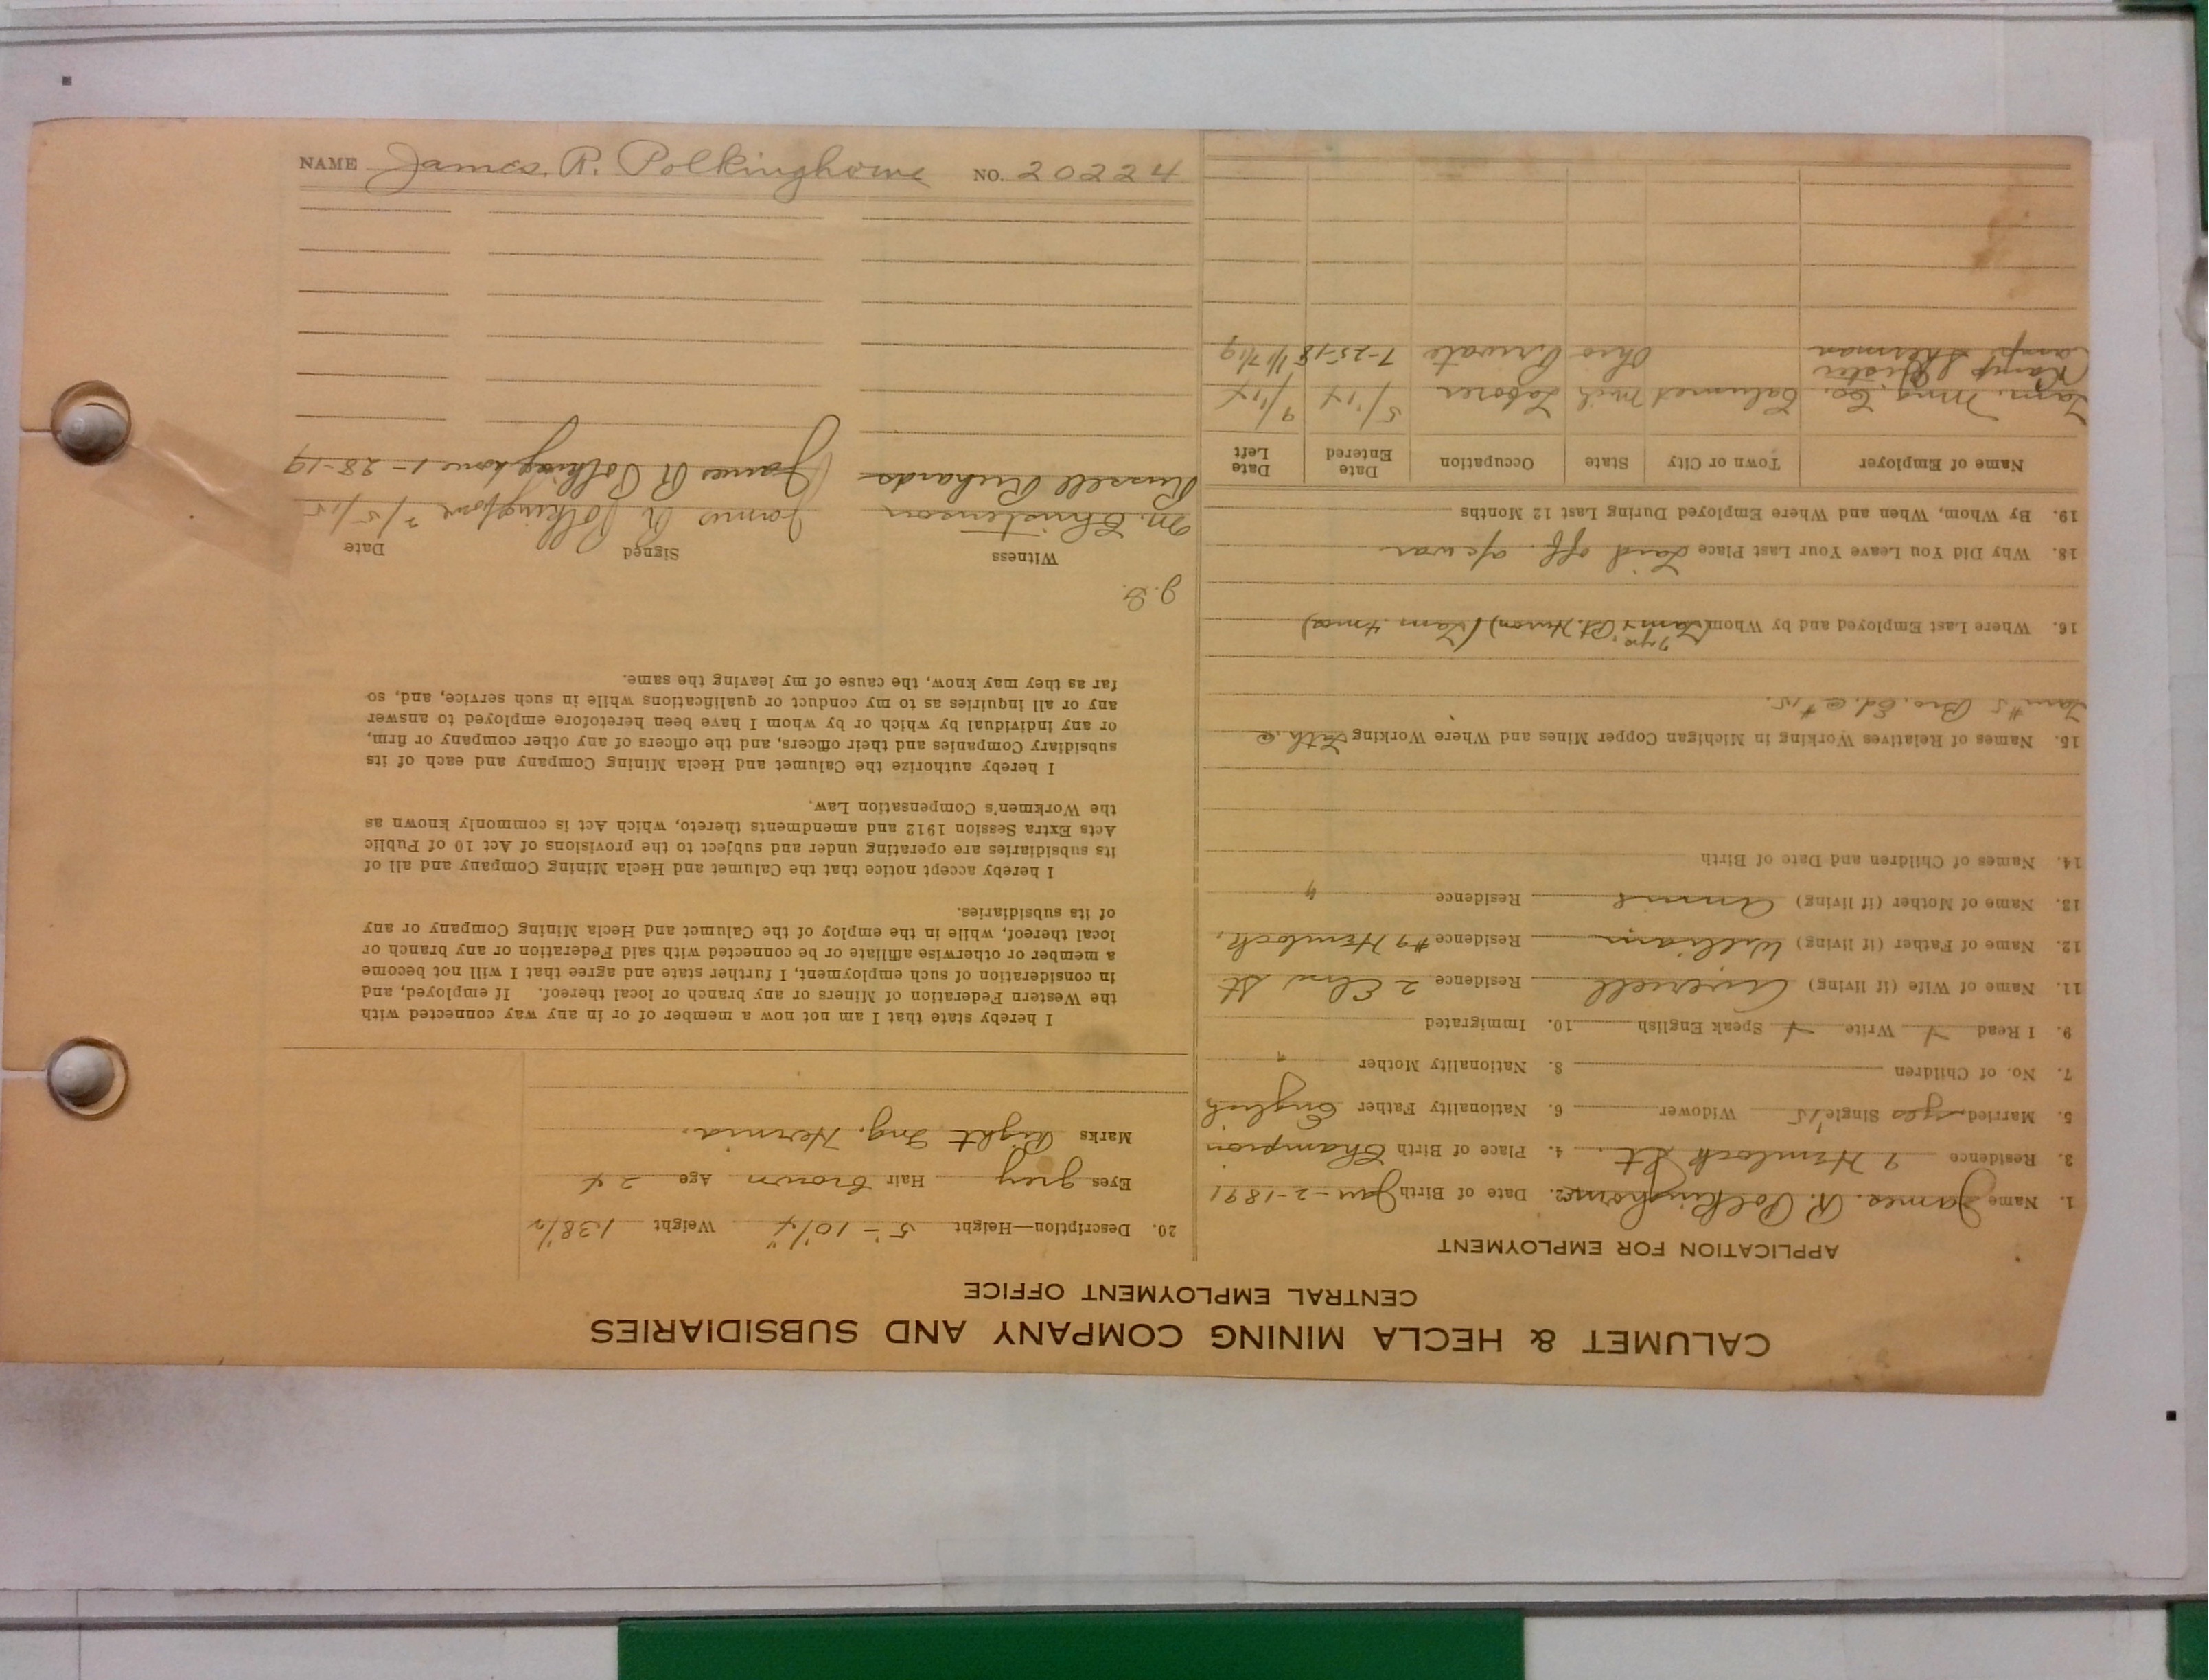 NAME James. R. Polkinghorne NO. 20224
CALUMET & HECLA MINING COMPANY AND SUBSIDIARIES
CENTRAL EMPLOYMENT OFFICE
APPLICATION FOR EMPLOYMENT
1. Name James. R. Polkinghorne 2. Date of Birth Jan-2-1891
3. Residence 9 Hemlock St. 4. Place of Birth Champion
5. Married yes Single '15 Widower 6. Nationality Father English
7. No. of Children 8. Nationality Mother "
9. I Read Write Speak English 10. Immigrated
11. Name of Wife (if living) Residence 2 Elm St
12. Name of Father (if living) William Residence #9 Hemlock,
13. Name of Mother (if living) Annie Residence "
14. Names of Children and Date of Birth
15. Names of Relatives Working in Michigan Copper Mines and Where Working Fath. @
Tam #5 Bro. Ed. @ #15.
16. Where Last Employed and by Whom (Pt. Huron) (Tam 4 mos)
18. Why Did You Leave Your Last Place Laid off. a/c war
19. By Whom, When and Where Employed During Last 12 Months
Name of Employer Town or City State Occupation Date Entered Date Left
Tam. Mng. Co. Calumet Mich Laborer 5/'14 9/'14
Camp Sherman Ohio Private 7-25-18 1/17/19
20. Description—Height 5'-10 1/4" Weight 138 1/2
Eyes grey Hair brown Age 24
Marks Right Ing. Hernia.
I hereby state that I am not now a member of or in any way connected with
the Western Federation of Miners or any branch or local thereof. If employed, and
in consideration of such employment, I further state and agree that I will not become
a member or otherwise affiliate or be connected with said Federation or any branch or
local thereof, while in the employ of the Calumet and Hecla Mining Company or any
of its subsidiaries.
I hereby accept notice that the Calumet and Hecla Mining Company and all of
its subsidiaries are operating under and subject to the provisions of Act 10 of Public
Acts Extra Session 1912 and amendments thereto, which Act is commonly known as
the Workmen's Compensation Law.
I hereby authorize the Calumet and Hecla Mining Company and each of its
subsidiary Companies and their officers, and the officers of any other company or firm,
or any individual by which or by whom I have been heretofore employed to answer
any or all inquiries as to my conduct or qualifications while in such service, and, so
far as they may know, the cause of my leaving the same.
Witness Signed Date
M. Christenson James R Polkinghorne 2/5/15
Russell Richards James R Polkinghorne 1-28-19